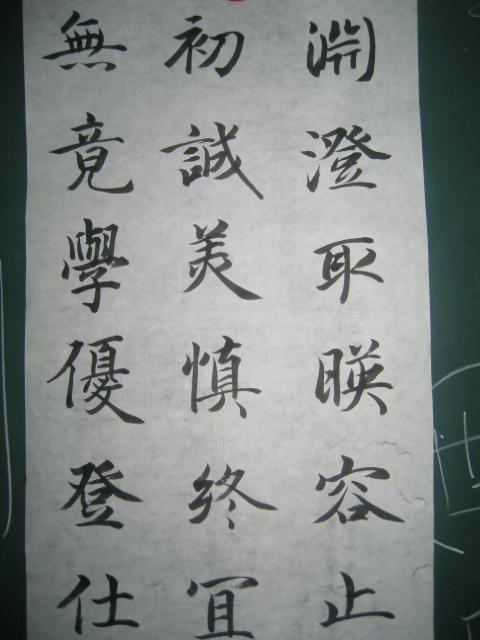 淵澄取暎容止
初誠美慎終宜
無竟學優登仕